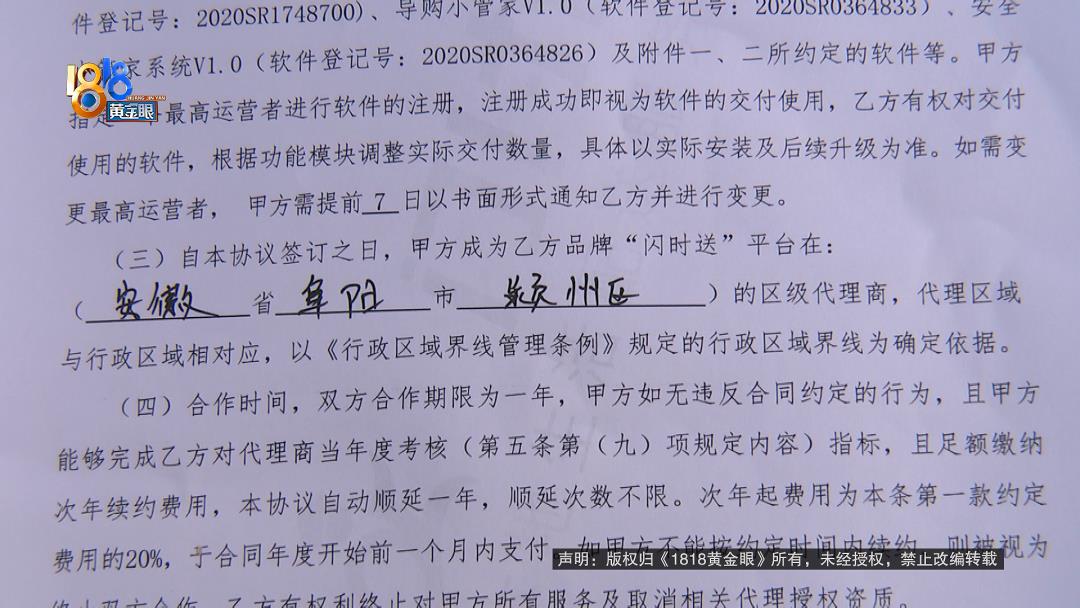 件登记号：2020SR1748700)、导购小管家V1.0（软件登记号：2020SR0364833）、安全
家系统V1.0（软件登记号：2020SR0364826）及附件一、二所约定的软件等。甲方
1818
HUANG JIN YAN
黄金眼
指定一个最高运营者进行软件的注册，注册成功即视为软件的交付使用，乙方有权对交付
使用的软件，根据功能模块调整实际交付数量，具体以实际安装及后续升级为准。如需变
更最高运营者， 甲方需提前 7 日以书面形式通知乙方并进行变更。
（三）自本协议签订之日，甲方成为乙方品牌“闪时送”平台在：
（ 安徽 省 阜阳 市 颍州区 ）的区级代理商，代理区域
与行政区域相对应，以《行政区域界线管理条例》规定的行政区域界线为确定依据。
（四）合作时间，双方合作期限为一年，甲方如无违反合同约定的行为，且甲方
能够完成乙方对代理商当年度考核（第五条第（九）项规定内容）指标，且足额缴纳
次年续约费用，本协议自动顺延一年，顺延次数不限。次年起费用为本条第一款约定
费用的20%，于合同年度开始前一个月内支付，如甲方不能按约定时间内续约，则被视为
声明：版权归《1818黄金眼》所有，未经授权，禁止改编转载
终止双方合作，乙方有权利终止对甲方所有服务及取消相关代理授权资质。